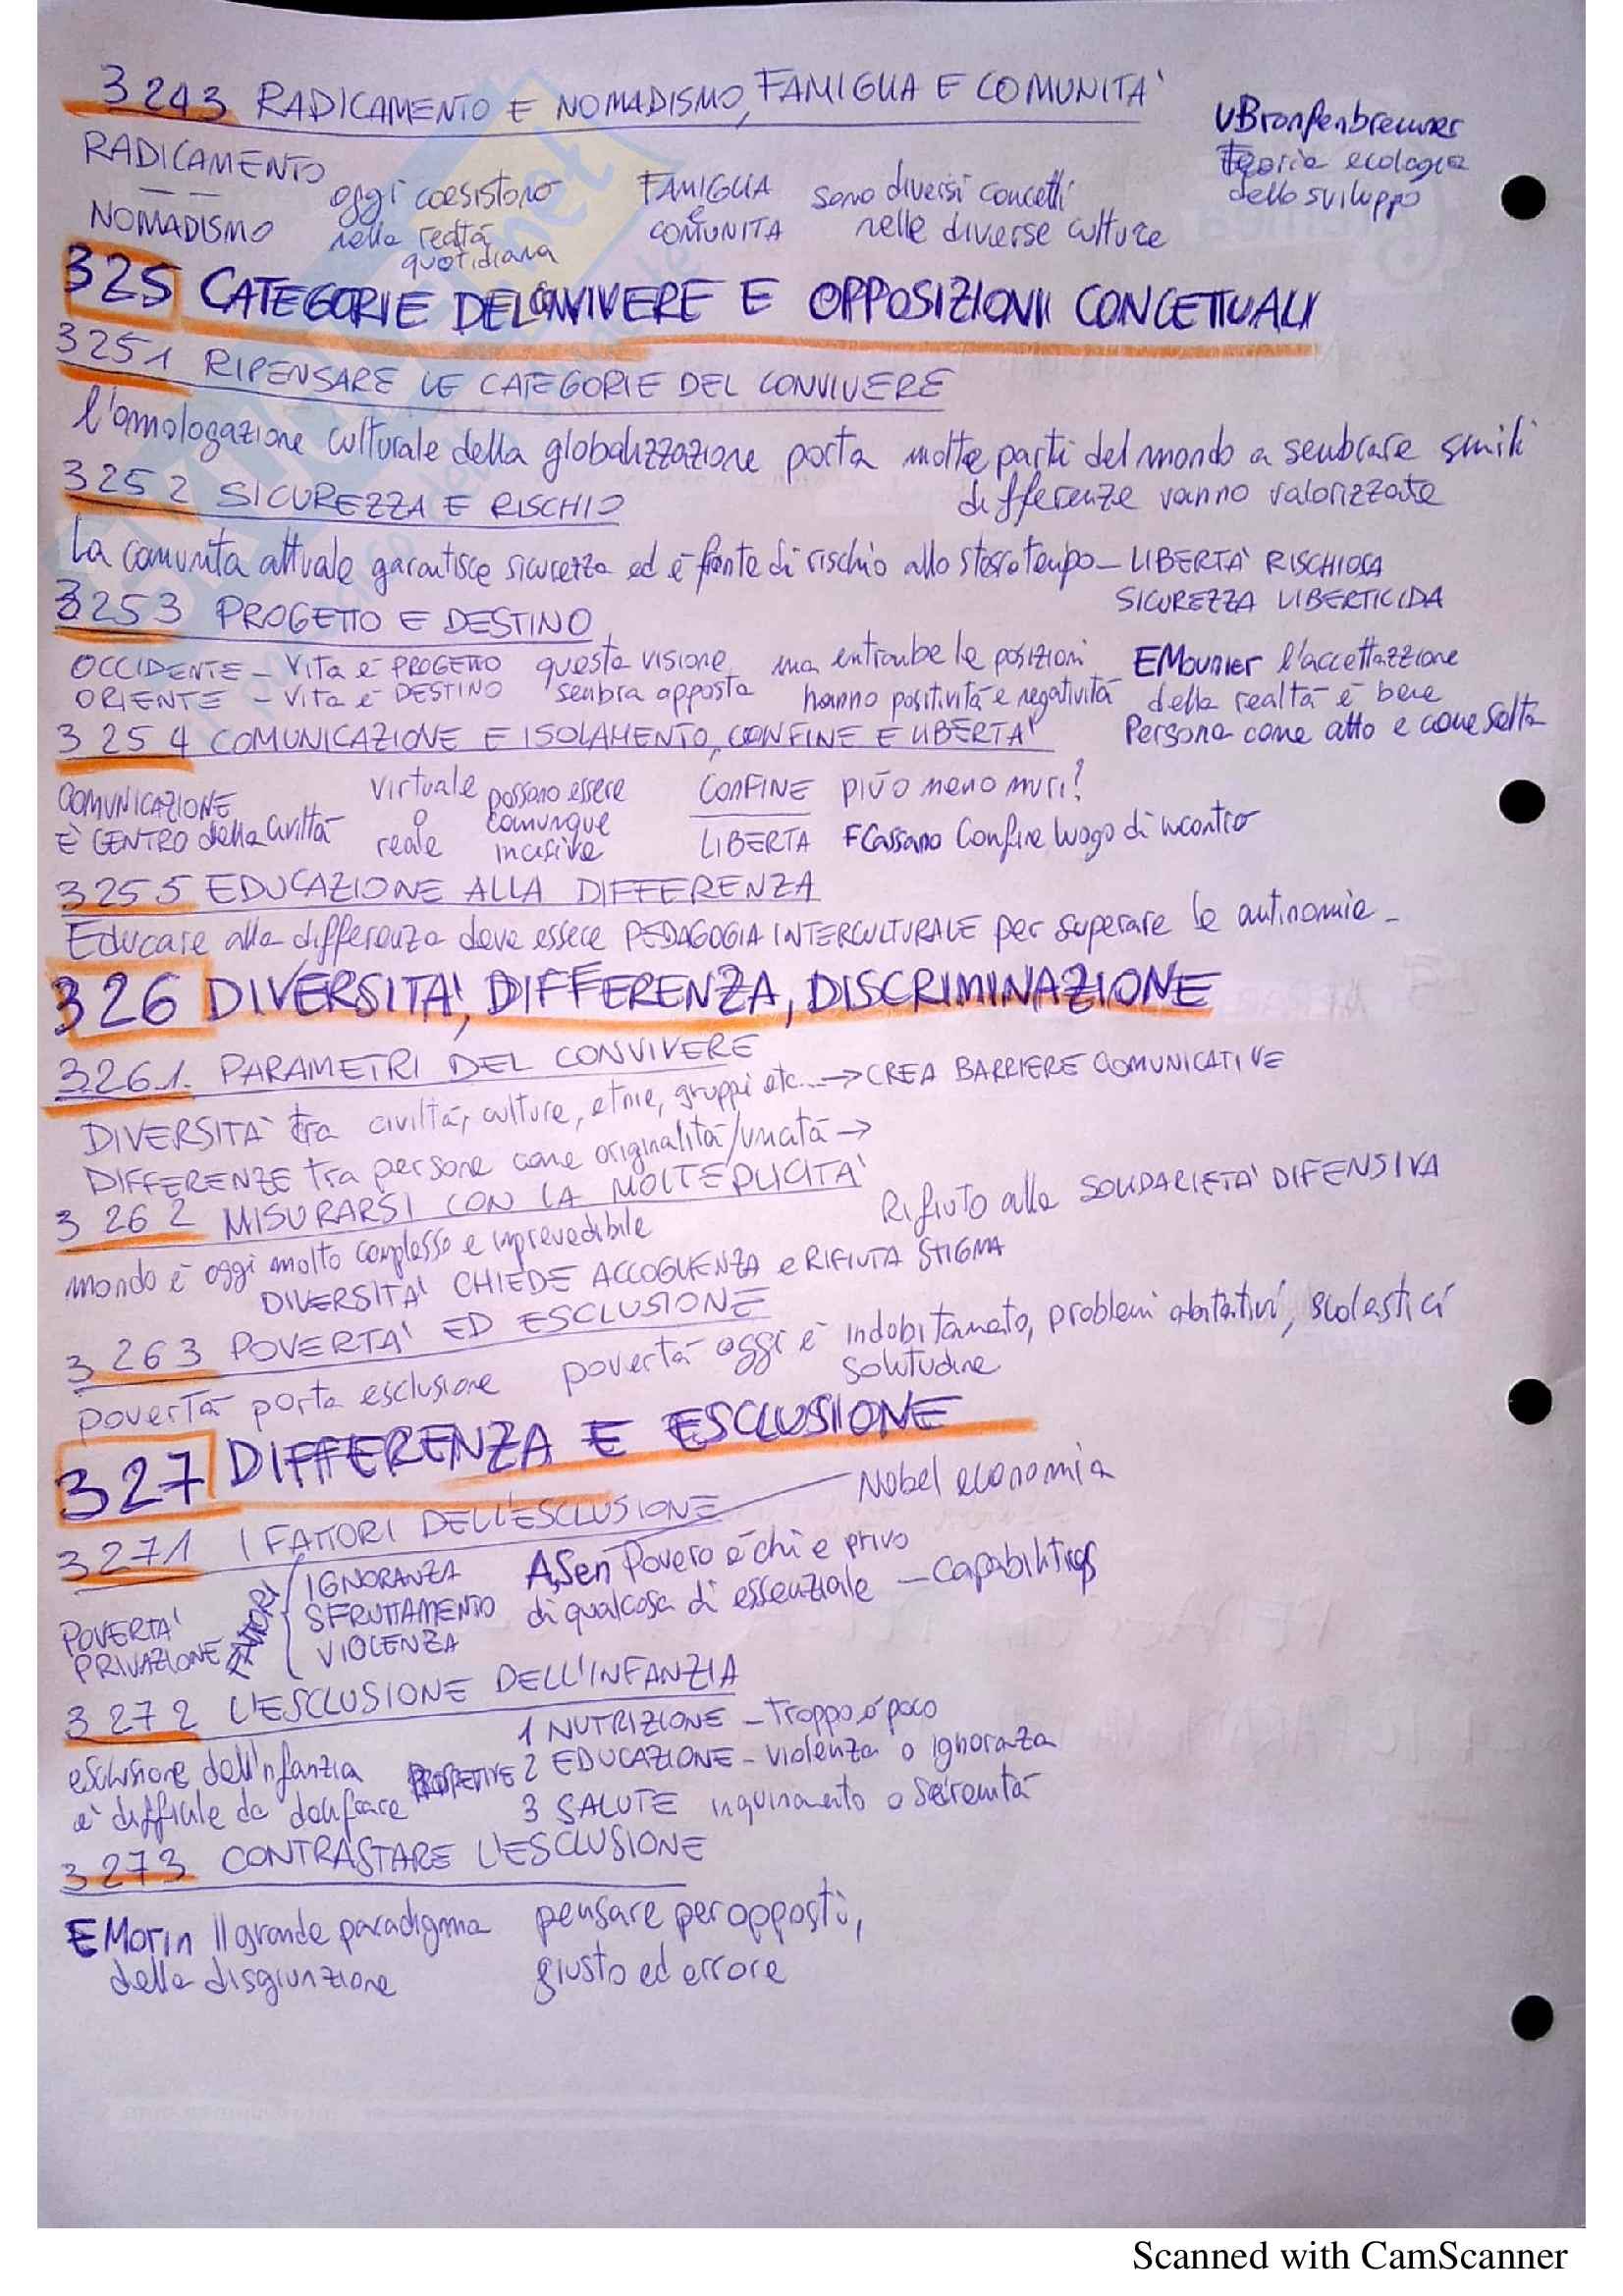 3243 RADICAMENTO E NOMADISMO, FAMIGLIA E COMUNITA'
UBronfenbrenner
teoria ecologica
dello sviluppo
RADICAMENTO
NOMADISMO
oggi coesistono
nella realtà
quotidiana
FAMIGLIA
e
COMUNITA
sono diversi concetti
nelle diverse culture
325 CATEGORIE DEL CONVIVERE E OPPOSIZIONI CONCETTUALI
3251 RIPENSARE LE CATEGORIE DEL CONVIVERE
l'omologazione culturale della globalizzazione porta molte parti del mondo a sembrare simili
differenze vanno valorizzate
3252 SICUREZZA E RISCHIO
La comunità attuale garantisce sicurezza ed è fonte di rischio allo stesso tempo - LIBERTA' RISCHIOSA
SICUREZZA LIBERTICIDA
3253 PROGETTO E DESTINO
OCCIDENTE - Vita è PROGETTO
ORIENTE - Vita è DESTINO
questa visione
sembra opposta
ma entrambe le posizioni
hanno positività e negatività
EMounier l'accettazzione
della realtà è bene
Persona come atto e come scelta
3254 COMUNICAZIONE E ISOLAMENTO, CONFINE E LIBERTA'
COMUNICAZIONE
E' CENTRO della civiltà
virtuale
o
reale
possono essere
comunque
incisive
CONFINE più o meno muri?
LIBERTA FCassano Confine luogo di incontro
3255 EDUCAZIONE ALLA DIFFERENZA
Educare alla differenza deve essere PEDAGOGIA INTERCULTURALE per superare le antinomie -
326 DIVERSITA', DIFFERENZA, DISCRIMINAZIONE
3261. PARAMETRI DEL CONVIVERE
DIVERSITA' tra civiltà, culture, etnie, gruppi etc... → CREA BARRIERE COMUNICATIVE
DIFFERENZE tra persone come originalità/unicità →
3262 MISURARSI CON LA MOLTEPLICITA'
mondo è oggi molto complesso e imprevedibile
Rifiuto alla SOLIDARIETA' DIFENSIVA
DIVERSITA' CHIEDE ACCOGLIENZA e RIFIUTA STIGMA
3263 POVERTA' ED ESCLUSIONE
povertà porta esclusione
povertà oggi è indebitamento, problemi abitativi, scolastici
solitudine
327 DIFFERENZA E ESCLUSIONE
3271 I FATTORI DELL'ESCLUSIONE
Nobel economia
POVERTA'
PRIVAZIONE
FATTORI
IGNORANZA
SFRUTTAMENTO
VIOLENZA
A,Sen Povero è chi è privo
di qualcosa di essenziale - capabilities
3272 L'ESCLUSIONE DELL'INFANZIA
esclusione dell'infanzia
è difficile da decifrare
PROSPETTIVE
1 NUTRIZIONE - Troppo o poco
2 EDUCAZIONE - violenza o ignoranza
3 SALUTE inquinamento o serenità
3273 CONTRASTARE L'ESCLUSIONE
EMorin Il grande paradigma
della disgiunzione
pensare per opposti,
giusto ed errore
Scanned with CamScanner